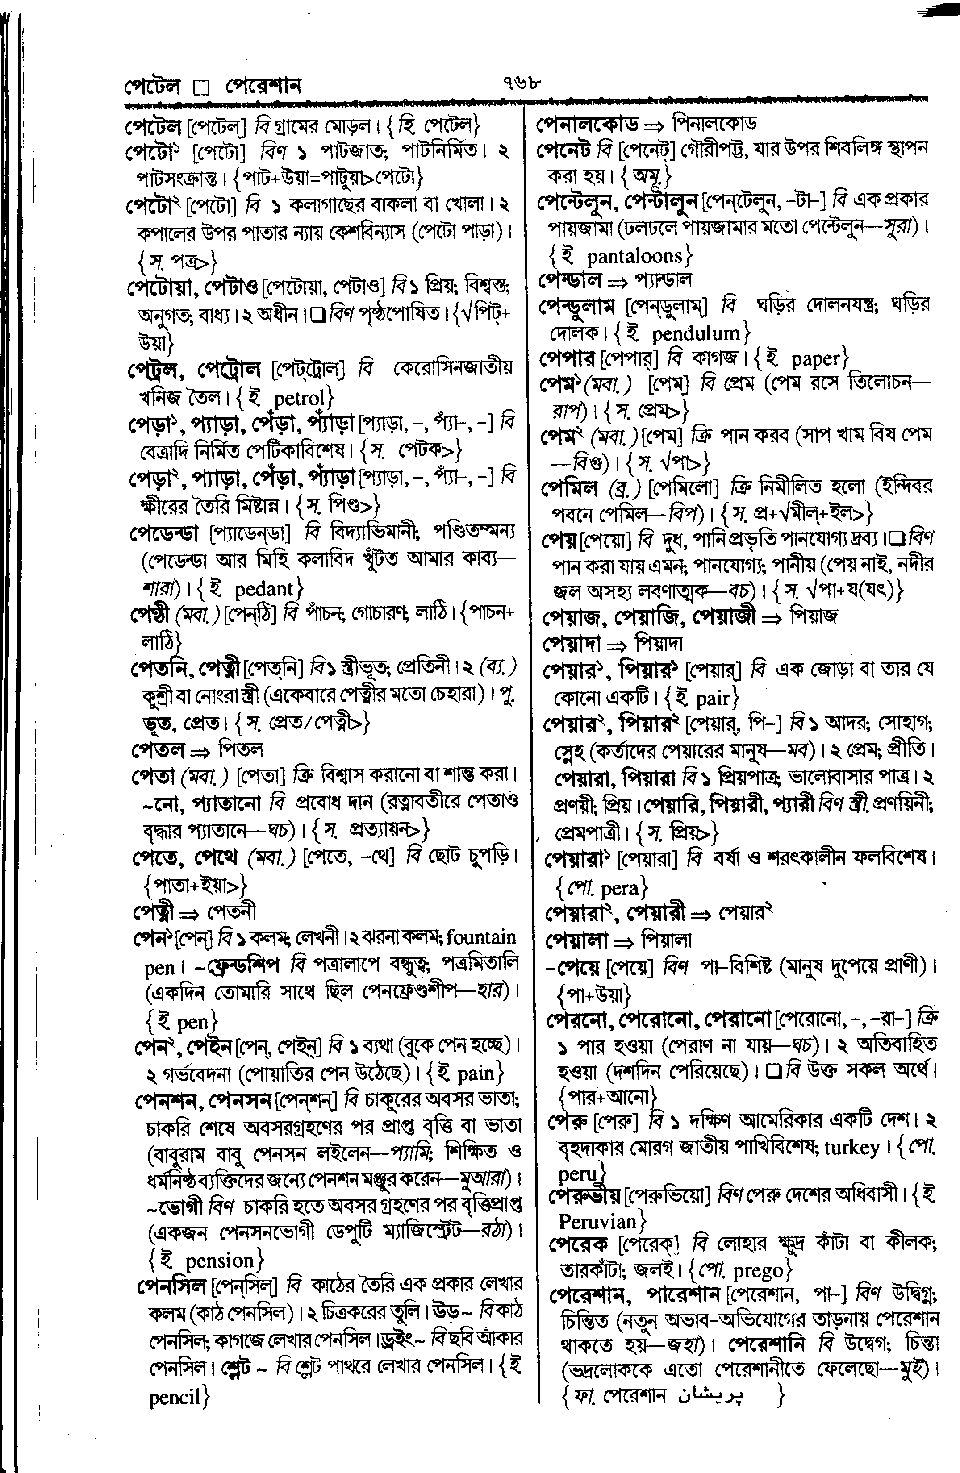 পেটেল □ পেরেশান
৭৬৮
পেটেল [পেটেল্] বি গ্রামের মোড়ল। {হি পেটেল}
পেটো১ [পেটো] বিণ ১ পাটজাত; পাটনির্মিত। ২
পাটসংক্রান্ত। {পাট+উয়া=পাটুয়া>পেটো}
পেটো২ [পেটো] বি ১ কলাগাছের বাকলা বা খোলা। ২
কপালের উপর পাতার ন্যায় কেশবিন্যাস (পেটো পাড়া)।
{স. পত্র>}
পেটোয়া, পেটাও [পেটোয়া, পেটাও] বি ১ প্রিয়; বিশ্বস্ত;
অনুগত; বাধ্য। ২ অধীন। □ বিণ পৃষ্ঠপোষিত। {√পিট্+
উয়া}
পেট্রল, পেট্রোল [পেট্‌ট্রোল্] বি কেরোসিনজাতীয়
খনিজ তৈল। {ই petrol}
পেড়া১, প্যাড়া, পেঁড়া, প্যাঁড়া [প্যাড়া, –, প্যাঁ–, –] বি
বেত্রাদি নির্মিত পেটিকাবিশেষ। {স. পেটক>}
পেড়া২, প্যাড়া, পেঁড়া, প্যাঁড়া [প্যাড়া, –, প্যাঁ–, –] বি
ক্ষীরের তৈরি মিষ্টান্ন। {স. পিণ্ড>}
পেডেন্ডা [প্যাডেন্‌ডা] বি বিদ্যাভিমানী; পণ্ডিতম্মন্য
(পেডেন্ডা আর মিহি কলাবিদ খুঁটত আমার কাব্য—
শারা)। {ই pedant}
পেণ্ঠী (মবা.) [পেন্‌ঠি] বি পাঁচন; গোচারণ; লাঠি। {পাচন+
লাঠি}
পেতনি, পেত্নী [পেত্‌নি] বি ১ স্ত্রীভূত; প্রেতিনী। ২ (ব্য.)
কুশ্রী বা নোংরা স্ত্রী (একেবারে পেত্নীর মতো চেহারা)। পু.
ভূত, প্রেত। {স. প্রেত/পেত্নী>}
পেতল ⇒ পিতল
পেতা (মবা.) [পেতা] ক্রি বিশ্বাস করানো বা শান্ত করা।
~নো, প্যাতানো বি প্রবোধ দান (রত্নাবতীরে পেতাও
বৃদ্ধার প্যাতানে—ঘচ)। {স. প্রত্যায়ন>}
পেতে, পেথে (মবা.) [পেতে, –থে] বি ছোট চুপড়ি।
{পাতা+ইয়া>}
পেত্নী ⇒ পেতনী
পেন১ [পেন্] বি ১ কলম; লেখনী। ২ ঝরনা কলম; fountain
pen। ~ফ্রেন্ডশিপ বি পত্রালাপে বন্ধুত্ব; পত্রমিতালি
(একদিন তোমারি সাথে ছিল পেনফ্রেণ্ডশীপ—হার)।
{ই pen}
পেন২, পেইন [পেন্, পেইন্] বি ১ ব্যথা (বুকে পেন হচ্ছে)।
২ গর্ভবেদনা (পোয়াতির পেন উঠেছে)। {ই pain}
পেনশন, পেনসন [পেন্‌শন্] বি চাকুরের অবসর ভাতা;
চাকরি শেষে অবসরগ্রহণের পর প্রাপ্ত বৃত্তি বা ভাতা
(বাবুরাম বাবু পেনসন লইলেন—প্যামি; শিক্ষিত ও
ধর্মনিষ্ঠ ব্যক্তিদের জন্যে পেনশন মঞ্জুর করেন—মুআরা)।
~ভোগী বিণ চাকরি হতে অবসর গ্রহণের পর বৃত্তিপ্রাপ্ত
(একজন পেনসনভোগী ডেপুটি ম্যাজিস্ট্রেট—রঠা)।
{ই pension}
পেনসিল [পেন্‌সিল্] বি কাঠের তৈরি এক প্রকার লেখার
কলম (কাঠ পেনসিল)। ২ চিত্রকরের তুলি। উড~ বি কাঠ
পেনসিল; কাগজে লেখার পেনসিল। ড্রইং~ বি ছবি আঁকার
পেনসিল। শ্লেট ~ বি শ্লেট পাথরে লেখার পেনসিল। {ই
pencil}
পেনালকোড ⇒ পিনালকোড
পেনেট বি [পেনেট্] গৌরীপট্ট, যার উপর শিবলিঙ্গ স্থাপন
করা হয়। {অমূ}
পেন্টেলুন, পেন্টালুন [পেন্‌টেলুন, –টা–] বি এক প্রকার
পায়জামা (ঢলঢলে পায়জামার মতো পেন্টেলুন—সুরা)।
{ই pantaloons}
পেন্ডাল ⇒ প্যান্ডাল
পেন্ডুলাম [পেন্‌ডুলাম্] বি ঘড়ির দোলনযন্ত্র; ঘড়ির
দোলক। {ই pendulum}
পেপার [পেপার্] বি কাগজ। {ই paper}
পেম১ (মবা.) [পেম্] বি প্রেম (পেম রসে তিলোচন—
রাপ)। {স. প্রেম>}
পেম২ (মবা.) [পেম্] ক্রি পান করব (সাপ খাম বিষ পেম
—বিগু)। {স. √পা>}
পেমিল (ব্র.) [পেমিলো] ক্রি নিমীলিত হলো (ইন্দিবর
পবনে পেমিল—বিপ)। {স. প্র+√মীল্+ইল>}
পেয় [পেয়ো] বি দুধ, পানি প্রভৃতি পানযোগ্য দ্রব্য। □ বিণ
পান করা যায় এমন; পানযোগ্য; পানীয় (পেয় নাই, নদীর
জল অসহ্য লবণাত্মক—বচ)। {স. √পা+য(যৎ)}
পেয়াজ, পেয়াজি, পেয়াজী ⇒ পিয়াজ
পেয়াদা ⇒ পিয়াদা
পেয়ার১, পিয়ার১ [পেয়ার্] বি এক জোড়া বা তার যে
কোনো একটি। {ই pair}
পেয়ার২, পিয়ার২ [পেয়ার্, পি–] বি ১ আদর; সোহাগ;
স্নেহ (কর্তাদের পেয়ারের মানুষ—মব)। ২ প্রেম; প্রীতি।
পেয়ারা, পিয়ারা বি ১ প্রিয়পাত্র; ভালোবাসার পাত্র। ২
প্রণয়ী; প্রিয়। পেয়ারি, পিয়ারী, প্যারী বিণ স্ত্রী. প্রণয়িনী;
প্রেমপাত্রী। {স. প্রিয়>}
পেয়ারা১ [পেয়ারা] বি বর্ষা ও শরৎকালীন ফলবিশেষ।
{পো. pera}
পেয়ারা২, পেয়ারী ⇒ পেয়ার২
পেয়ালা ⇒ পিয়ালা
-পেয়ে [পেয়ে] বিণ পা-বিশিষ্ট (মানুষ দুপেয়ে প্রাণী)।
{পা+উয়া}
পেরনো, পেরোনো, পেরানো [পেরোনো, –, –রা–] ক্রি
১ পার হওয়া (পেরাণ না যায়—ঘচ)। ২ অতিবাহিত
হওয়া (দশদিন পেরিয়েছে)। □ বি উক্ত সকল অর্থে।
{পার+আনো}
পেরু [পেরু] বি ১ দক্ষিণ আমেরিকার একটি দেশ। ২
বৃহদাকার মোরগ জাতীয় পাখিবিশেষ; turkey। {পো.
peru}
পেরুভীয় [পেরুভিয়ো] বিণ পেরু দেশের অধিবাসী। {ই
Peruvian}
পেরেক [পেরেক্] বি লোহার ক্ষুদ্র কাঁটা বা কীলক;
তারকাঁটা; জলই। {পো. prego}
পেরেশান, পারেশান [পেরেশান, পা–] বিণ উদ্বিগ্ন;
চিন্তিত (নতুন অভাব-অভিযোগের তাড়নায় পেরেশান
থাকতে হয়—জহা)। পেরেশানি বি উদ্বেগ; চিন্তা
(ভদ্রলোককে এতো পেরেশানীতে ফেলেছো—মুই)।
{ফা. পেরেশান پریشان }